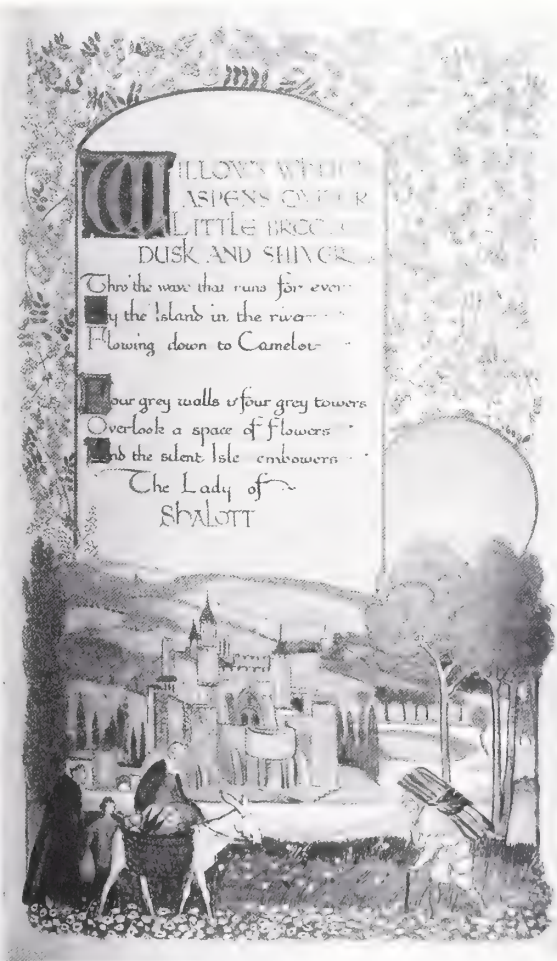 WILLOWS WHITEN
ASPENS QUIVER
LITTLE BREEZES
DUSK AND SHIVER
Thro' the wave that runs for ever
By the Island in the river
Flowing down to Camelot
Four grey walls & four grey towers
Overlook a space of flowers
And the silent Isle embowers
The Lady of
SHALOTT